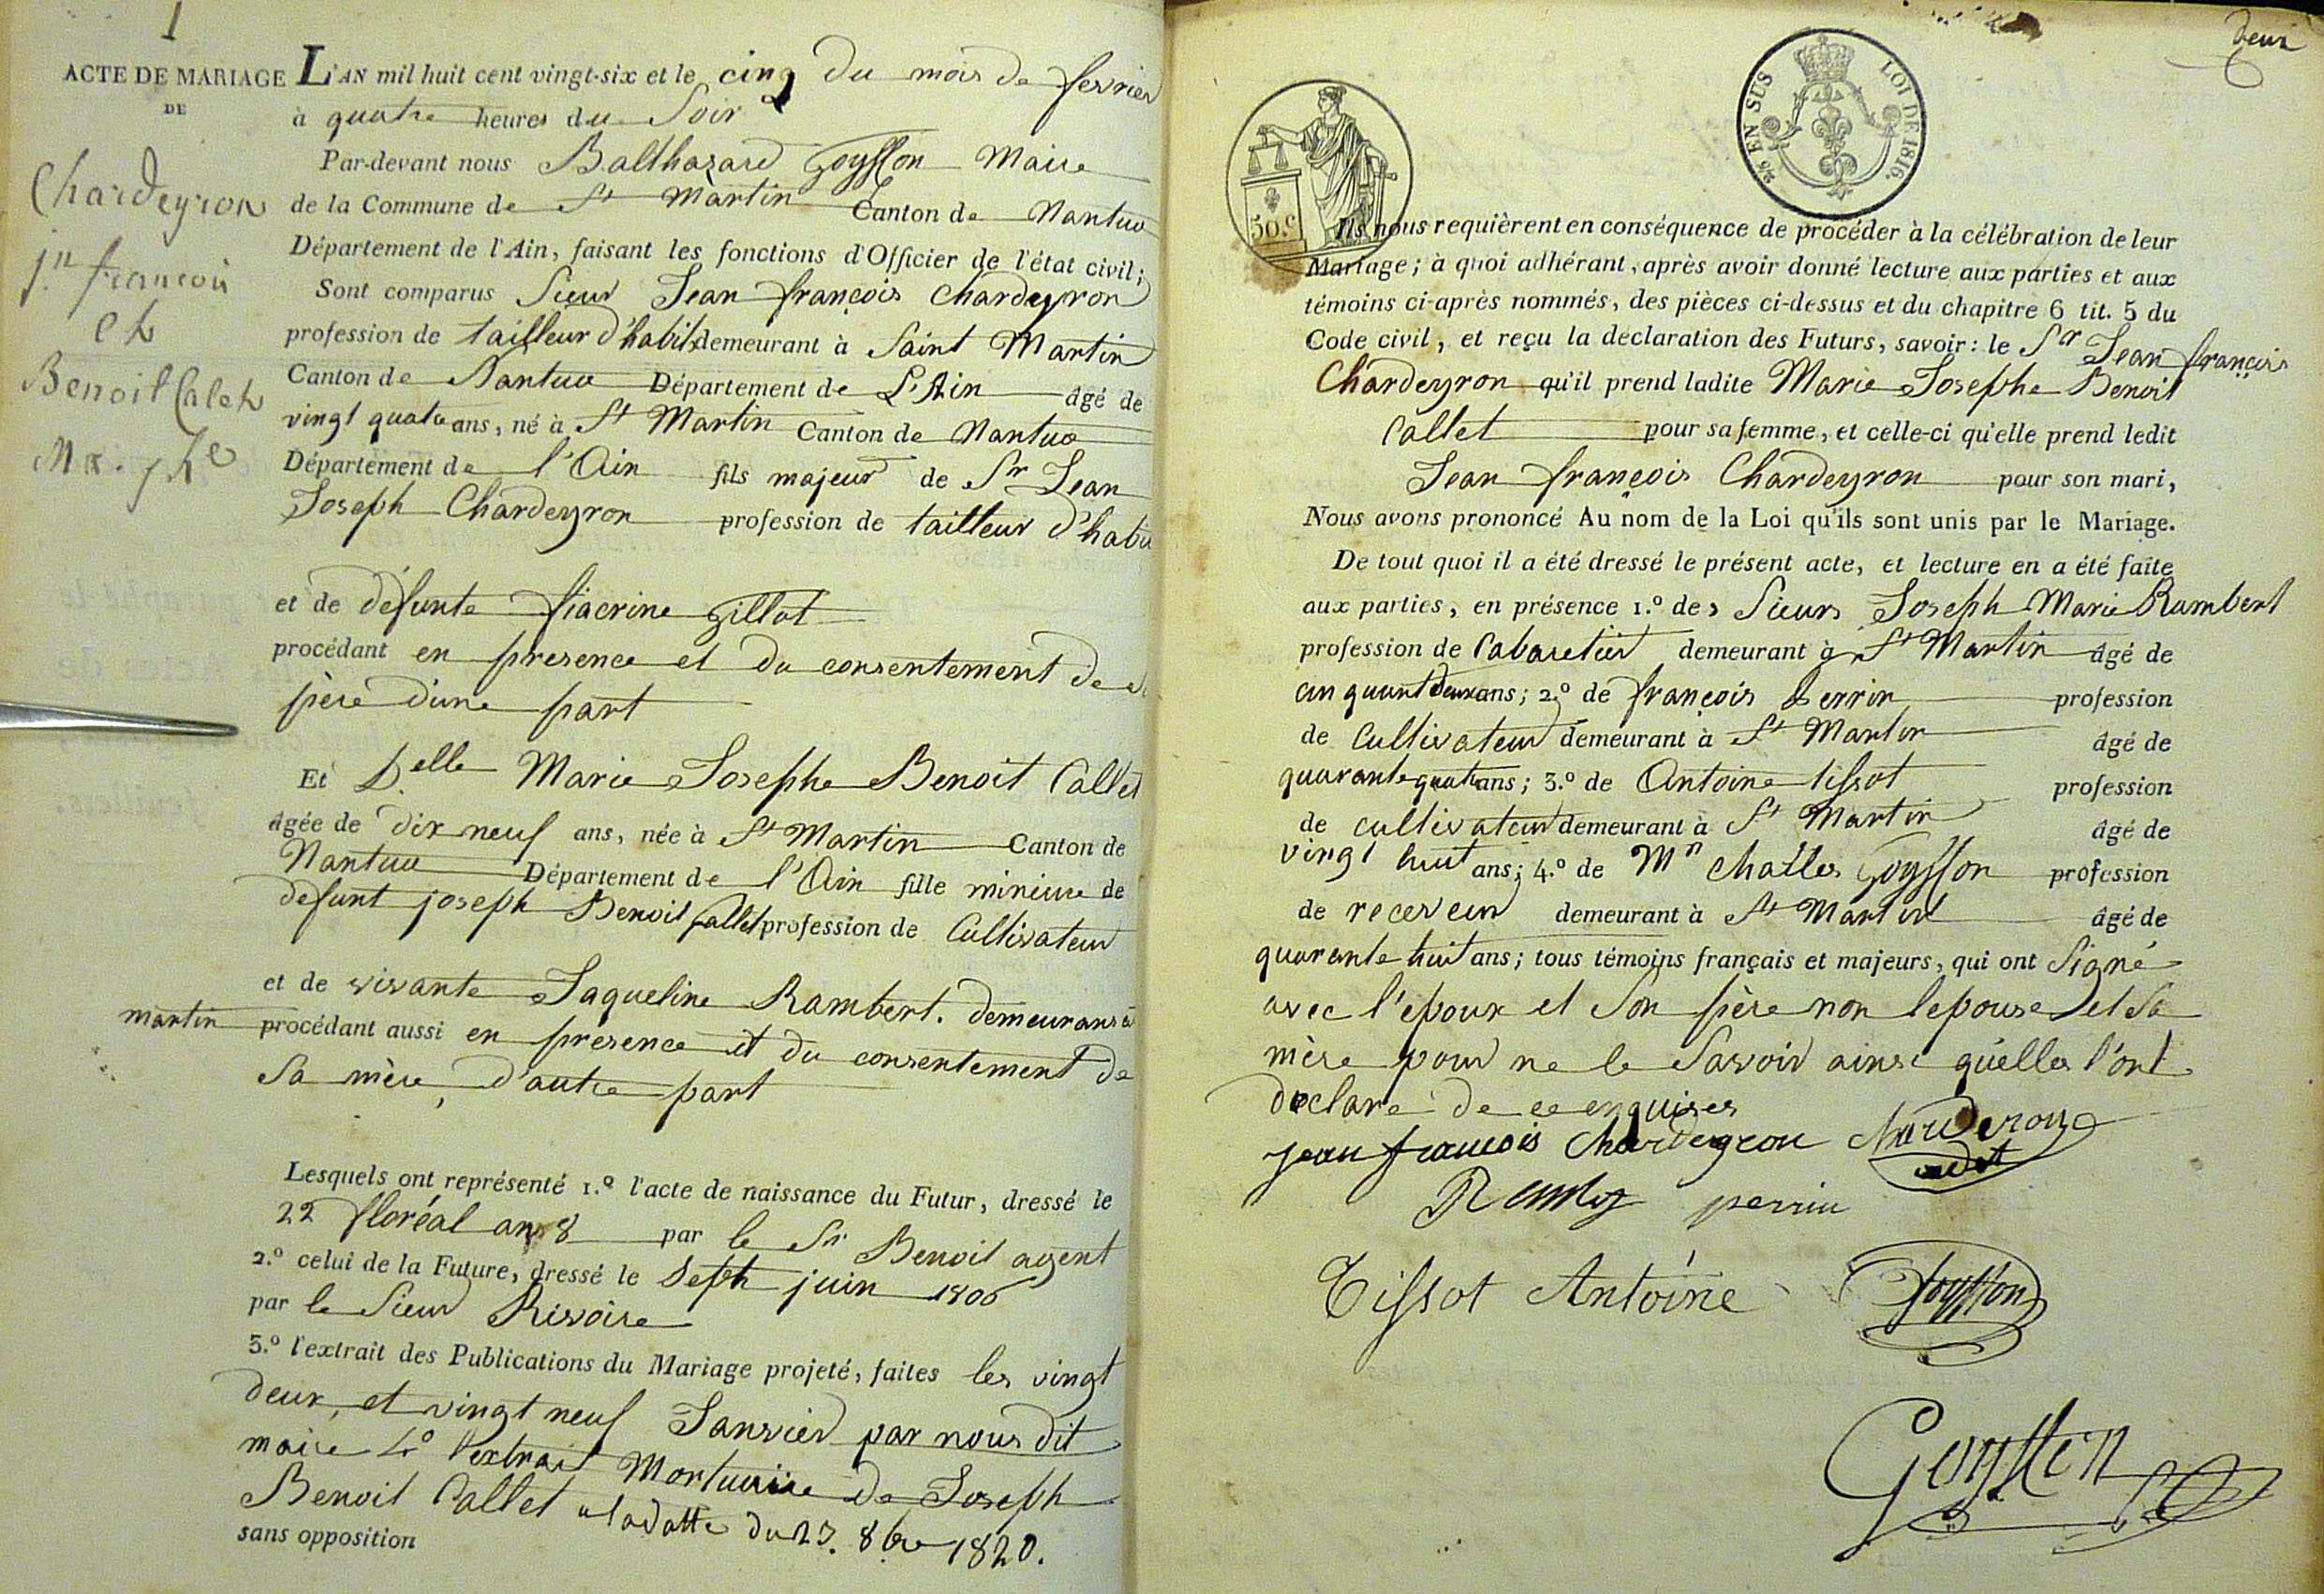 1
ACTE DE MARIAGE
DE
Chardeyron
jn françois
et
Benoit Calet
L'AN mil huit cent vingt-six et le cinq du mois de fevrier
à quatre heures du Soir
Par-devant nous Balthazard Goysson Maire
de la Commune de St Martin Canton de Nantua
Département de l'Ain, faisant les fonctions d'Officier de l'état civil;
Sont comparus Sieur Jean françois Chardeyron
profession de tailleur d'habits demeurant à Saint Martin
Canton de Nantua Département de L'Ain âgé de
vingt quatre ans, né à St Martin Canton de Nantua
Département de l'Ain fils majeur de Sr Jean
Joseph Chardeyron profession de tailleur d'habit
et de défunte fiacrine Gillot
procédant en presence et du consentement de
père d'une part
Et Delle Marie Josephe Benoit Callet
âgée de dix neuf ans, née à St Martin Canton de
Nantua Département de l'Ain fille mineure de
defunt joseph Benoit Callet profession de Cultivateur
et de vivante Jaqueline Rambert. demeurans à
martin procédant aussi en presence et du consentement de
Sa mère, d'autre part
Lesquels ont représenté 1.º l'acte de naissance du Futur, dressé le
22 floréal an 8 par le Sr Benoit agent
2.º celui de la Future, dressé le Sept juin 1806
par le Sieur Rivoire
3.º l'extrait des Publications du Mariage projeté, faites les vingt
deux, et vingt neuf Janvier par nous dit
maire 4º l'extrait Mortuaire de Joseph
Benoit Callet a la datte du 23. 8bre 1820.
sans opposition
deux
2/5 EN SUS LOI DE 1816.
50.c
Ils nous requièrent en conséquence de procéder à la célébration de leur
Mariage; à quoi adhérant, après avoir donné lecture aux parties et aux
témoins ci-après nommés, des pièces ci-dessus et du chapitre 6 tit. 5 du
Code civil, et reçu la déclaration des Futurs, savoir: le Sr Jean françois
Chardeyron qu'il prend ladite Marie Josephe Benoit
Callet pour sa femme, et celle-ci qu'elle prend ledit
Jean françois Chardeyron pour son mari,
Nous avons prononcé Au nom de la Loi qu'ils sont unis par le Mariage.
De tout quoi il a été dressé le présent acte, et lecture en a été faite
aux parties, en présence 1.º des Sieurs Joseph Marie Rambert
profession de Cabaretier demeurant à St Martin âgé de
cinquant deux ans; 2.º de françois Perrin profession
de Cultivateur demeurant à St Martin âgé de
quarante quatre ans; 3.º de Antoine tissot profession
de cultivateur demeurant à St Martin âgé de
vingt huit ans; 4.º de Mn Charles Goysson profession
de receveur demeurant à St Martin âgé de
quarante huit ans; tous témoins français et majeurs, qui ont Signé
avec l'epoux et Son père non lepouse et Sa
mère pour ne le Savoir ainsi quelles l'ont
declare de ce enquises
jean francois Chardeyron Charderon
perrin
Tissot Antoine Goysson
Goysson